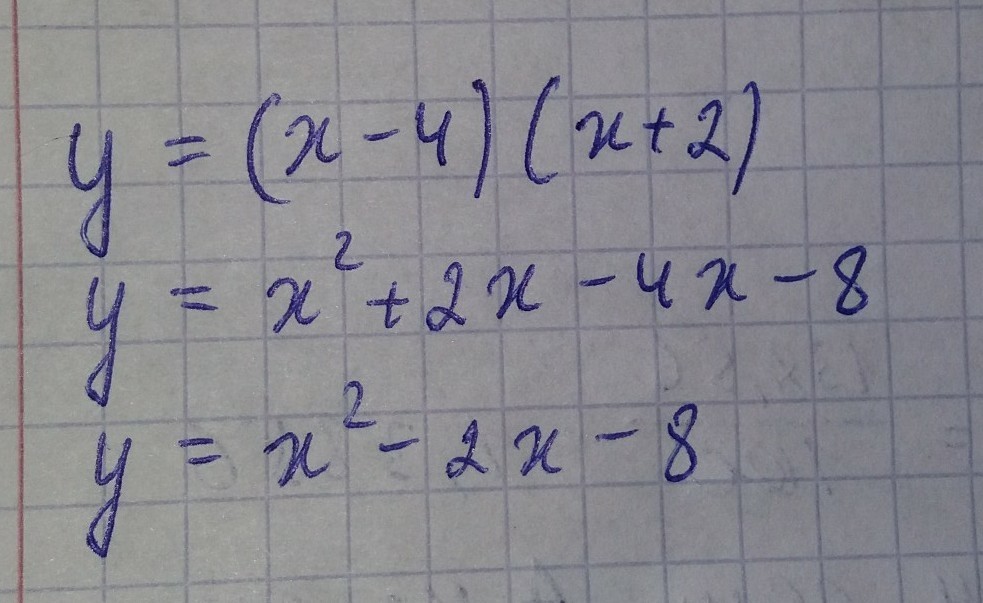 y = (x - 4) (x + 2)
y = x² + 2x - 4x - 8
y = x² - 2x - 8